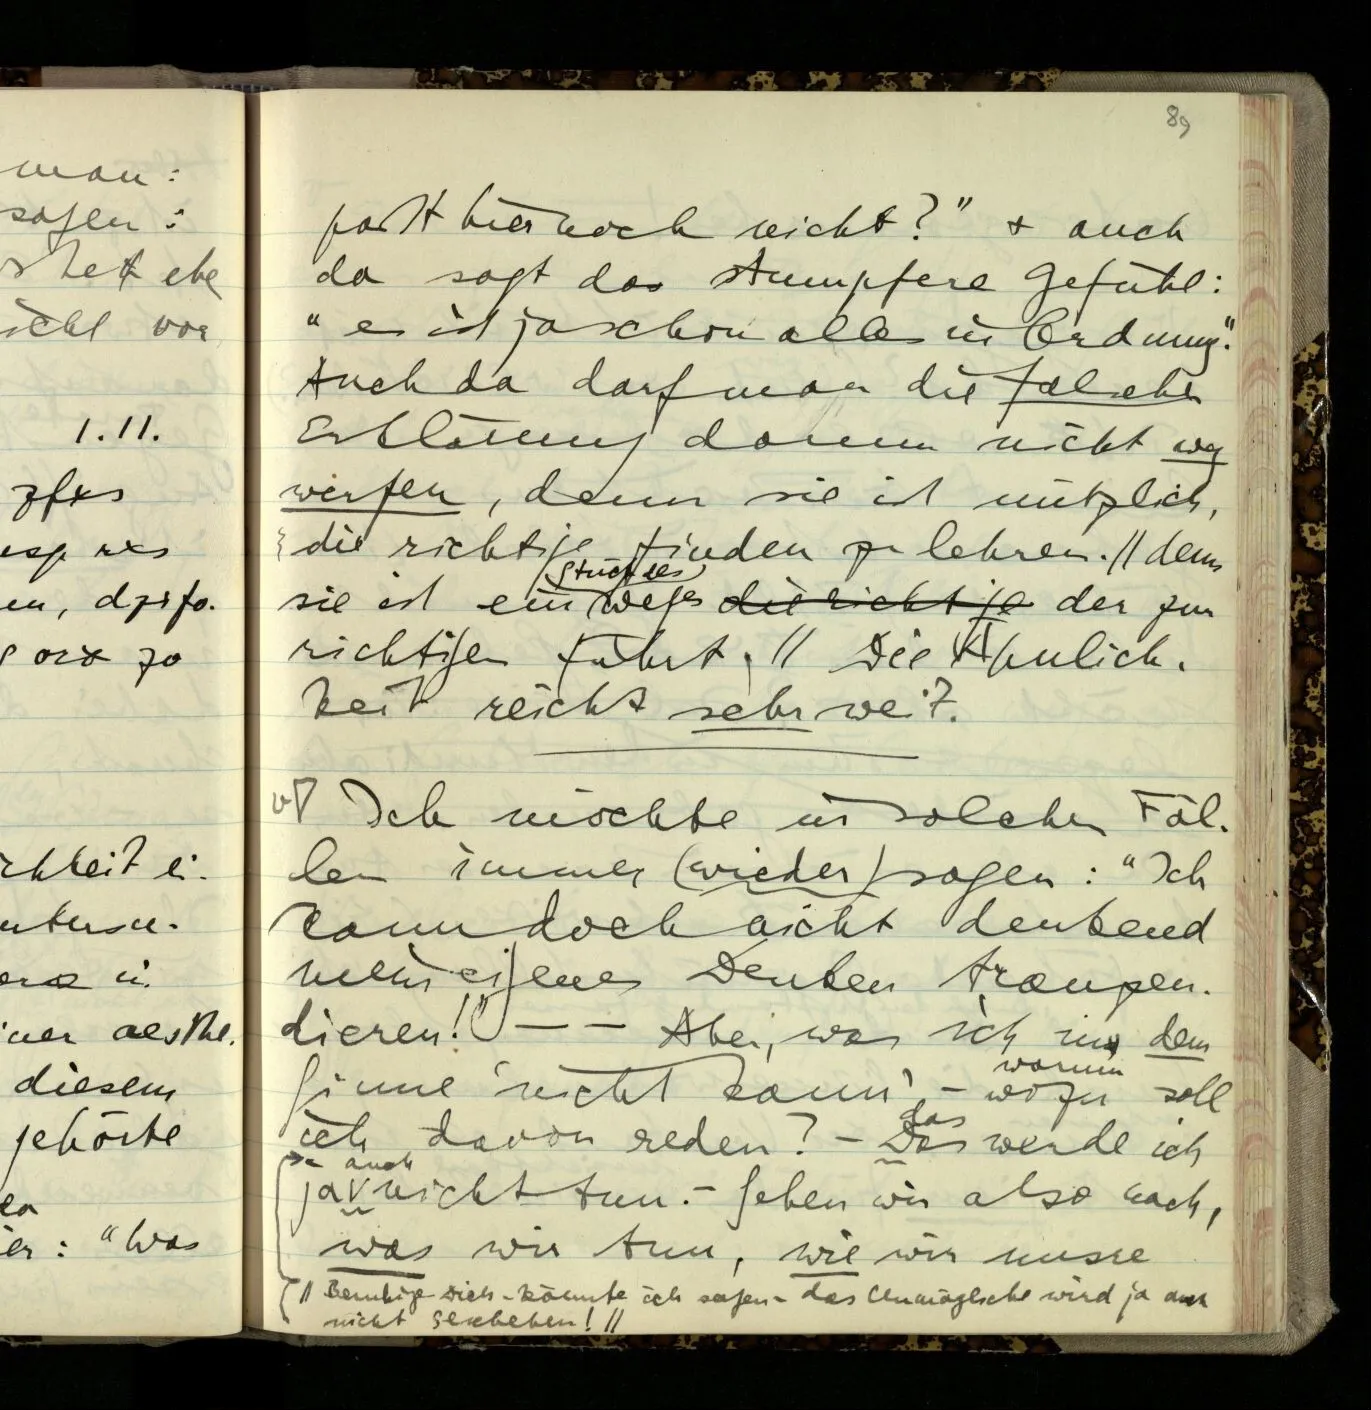 man:
sagen:
ehe
nicht vor
1.11.
zfxs
en, dpifo.
zo
chkeit ei-
untersu-
in
iner aesthe-
diesem
gehörte
er: "Was
89
paßt hier noch nicht?" & auch
da sagt das stumpfere Gefühl:
"es ist ja schon alles in Ordnung."
Auch da darf man die falsche
Erklärung darum nicht weg
werfen, denn sie ist nützlich,
die richtige finden zu lehren. // denn
Stück des
sie ist ein Weges die richtige der zur
richtigen führt. // Die Ähnlich-
keit reicht sehr weit.
Ich möchte in solchen Fäl-
len immer (wieder) sagen: "Ich
kann doch nicht denkend
mein eigenes Denken transzen-
dieren!" – – Aber, was ich in dem
warum
Sinne 'nicht kann', – wozu soll
das
ich davon reden? – Das werde ich
auch
ja nicht tun. – Sehen wir also nach,
was wir tun, wie wir unsre
// Beruhige Dich – könnte ich sagen – das Unmögliche wird ja auch
nicht geschehen! //